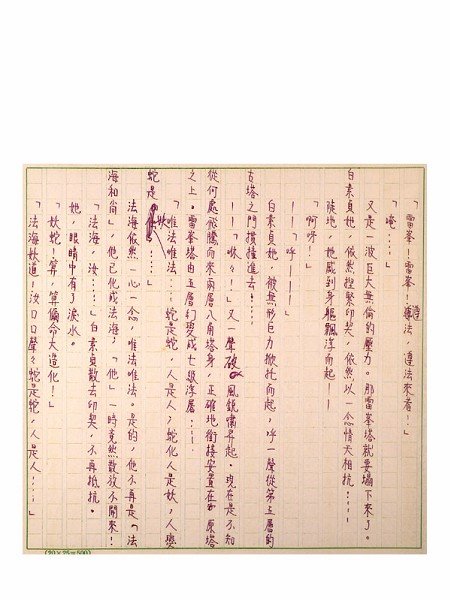 「雷峯！雷峯！遵法，遵法來看！」
「唵……」
又是一波巨大無倫的壓力。那雷峯塔就要塌下來了。
白素貞她，依然捏緊印契，依然以一念情天相抗！……
陡地，她感到身軀飄浮而起——
「啊呀！」
——「呼————」
白素貞她，被無形巨力掀托而起，呼一聲從第五層的
古塔之門摜撞進去……
——「咻々！」又一聲破風銳嘯昇起。現在是不知
從何處飛騰而來兩層八角塔身，正確地銜接安置在原塔
之上。雷峯塔由五層幻變成七級浮屠……
「唯法唯法……蛇是蛇，人是人；蛇化人是妖，人與
蛇是妖……」
法海依然一心一念，唯法唯法。是的，他不再是「法
海和尚」，他已化成法海，「他」一時竟然散放不開來！
「法海，汝……」白素貞散去印契，不再抵抗。
她，眼睛中有了淚水。
「妖蛇！算，算偏命大造化！」
「法海妖道！汝口口聲々蛇是蛇，人是人……」
(20×25=500)